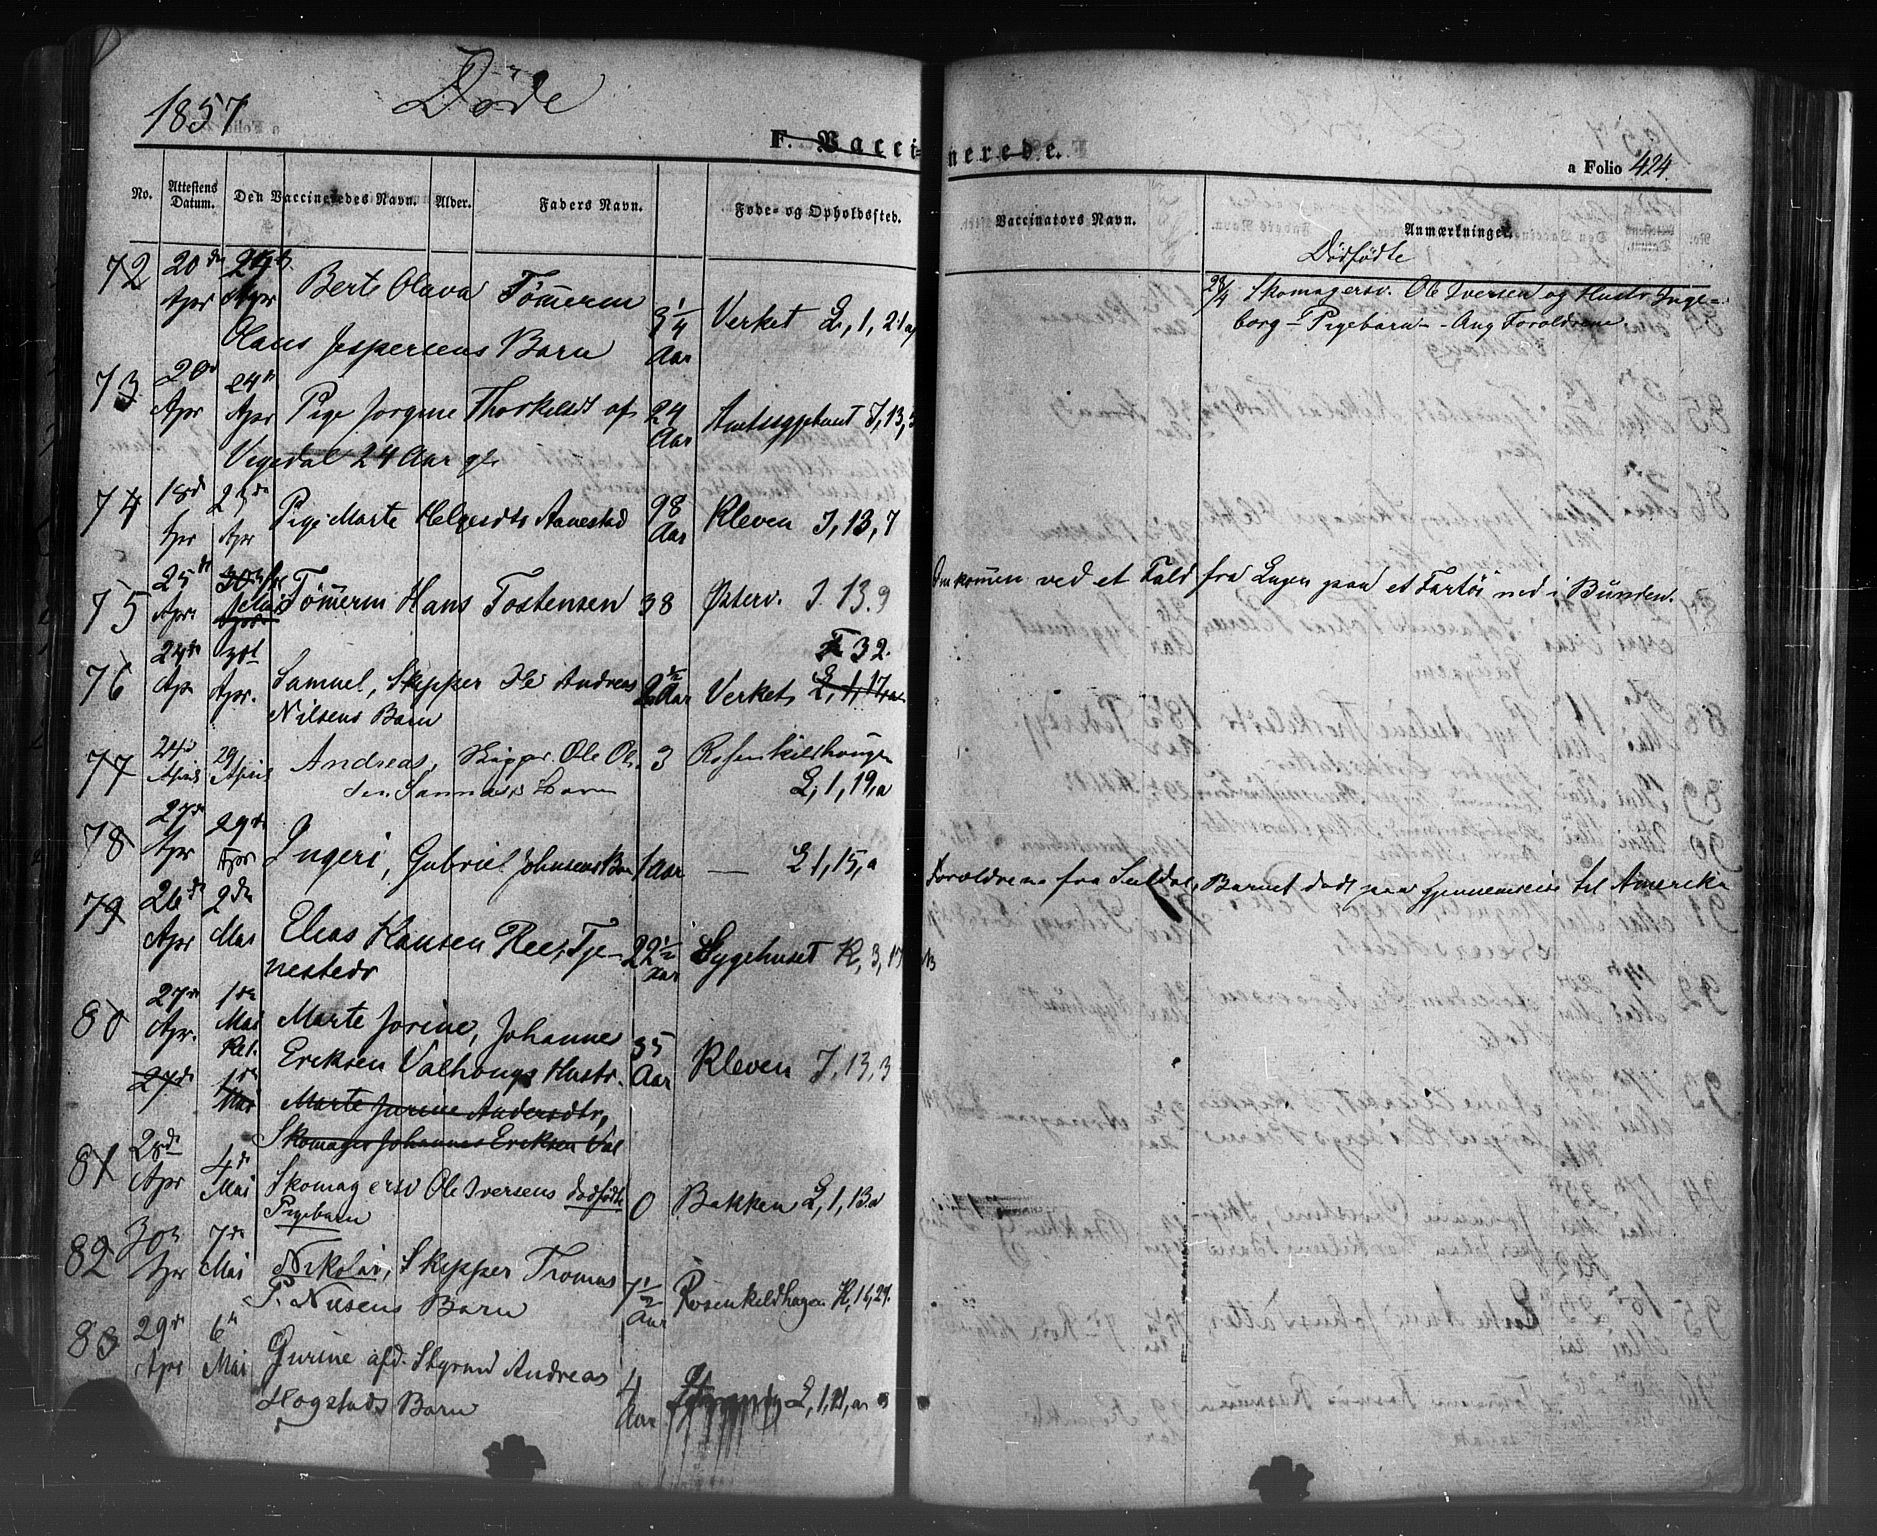 1857 Døde
F. Vaccinerede.
a Folio 424.
No. Attestens Datum. Den Vaccineredes Navn. Alder. Faders Navn. Føde- og Opholdssted. Vaccinators Navn. Anmærkninger.
Dødfødte
28/4 Skomagersv. Ole Iversen og Hustr. Inge-
borg - Pigebarn - Ang Forældrene
72 20de Apr Apr Berte Olava Tømerm
Hans Jespersens Barn 3 1/4 Aar Verket L, 1, 21 a
73 20d Apr 24de Apr Pige Jorgine Thorkelsdt af
Vegedal 24 Aar gl. 24 Aar Amtssygehuset J, 13, 5
74 18de Apr 23de Apr Pige Marte Helgesdtr Aanestad 98 Aar Kleven J, 13, 7
75 25de Apr. 30te Apr Tømerm Hans Tostensen 38 Østerv. J. 13. 9
Omkomen ved et Fald fra Lugen paa et Fartøi ned i Bunden.
76 24de Apr. Apr. Samuel, Skipper Ole Andreas
Nilsens Barn 2 1/2 Aar Verket 32.
L, 1, 17, a
77 24d April 29 April Andreas, Skipper Ole Ol-
sen Sannæs's Barn 3 Rosenkildhaugen
L, 1, 19, a
78 27de Apr 29de Apr Ingeri, Gabriel Johnsens Bar 1 Aar — L 1, 15, a
Forældrene fra Suldal, Barnet døde paa Gjennemreise til Amerika
79 26de Apr 2den Mai Elias Hansen Ree, Tje-
nestedr 22 1/2 Aar Sygehuset K, 3, 17
80 27de Apr. 1ste Mai Marte Jorine, Johannes
Eriksen Valhougs Hustr. 35 Aar Kleven J, 13, 3
27de 1ste Mai Marte Jorine Andersdtr,
Skomager Johannes Eriksen Val
81 28de Apr 4de Mai Skomagersv Ole Iversens dødfødte
Pigebarn 0 Bakken L, 1, 13 a
82 30te Apr 7de Mai Nikolai, Skipper Tromas
P. Nilsens Barn 7 1/2 Aar Rosenkildhagen K, 14, 29.
83 29de Apr 6te Mai Gurine afd. Styrmd Andreas
Hogstads Barn 4 Aar L, 1, 21, a